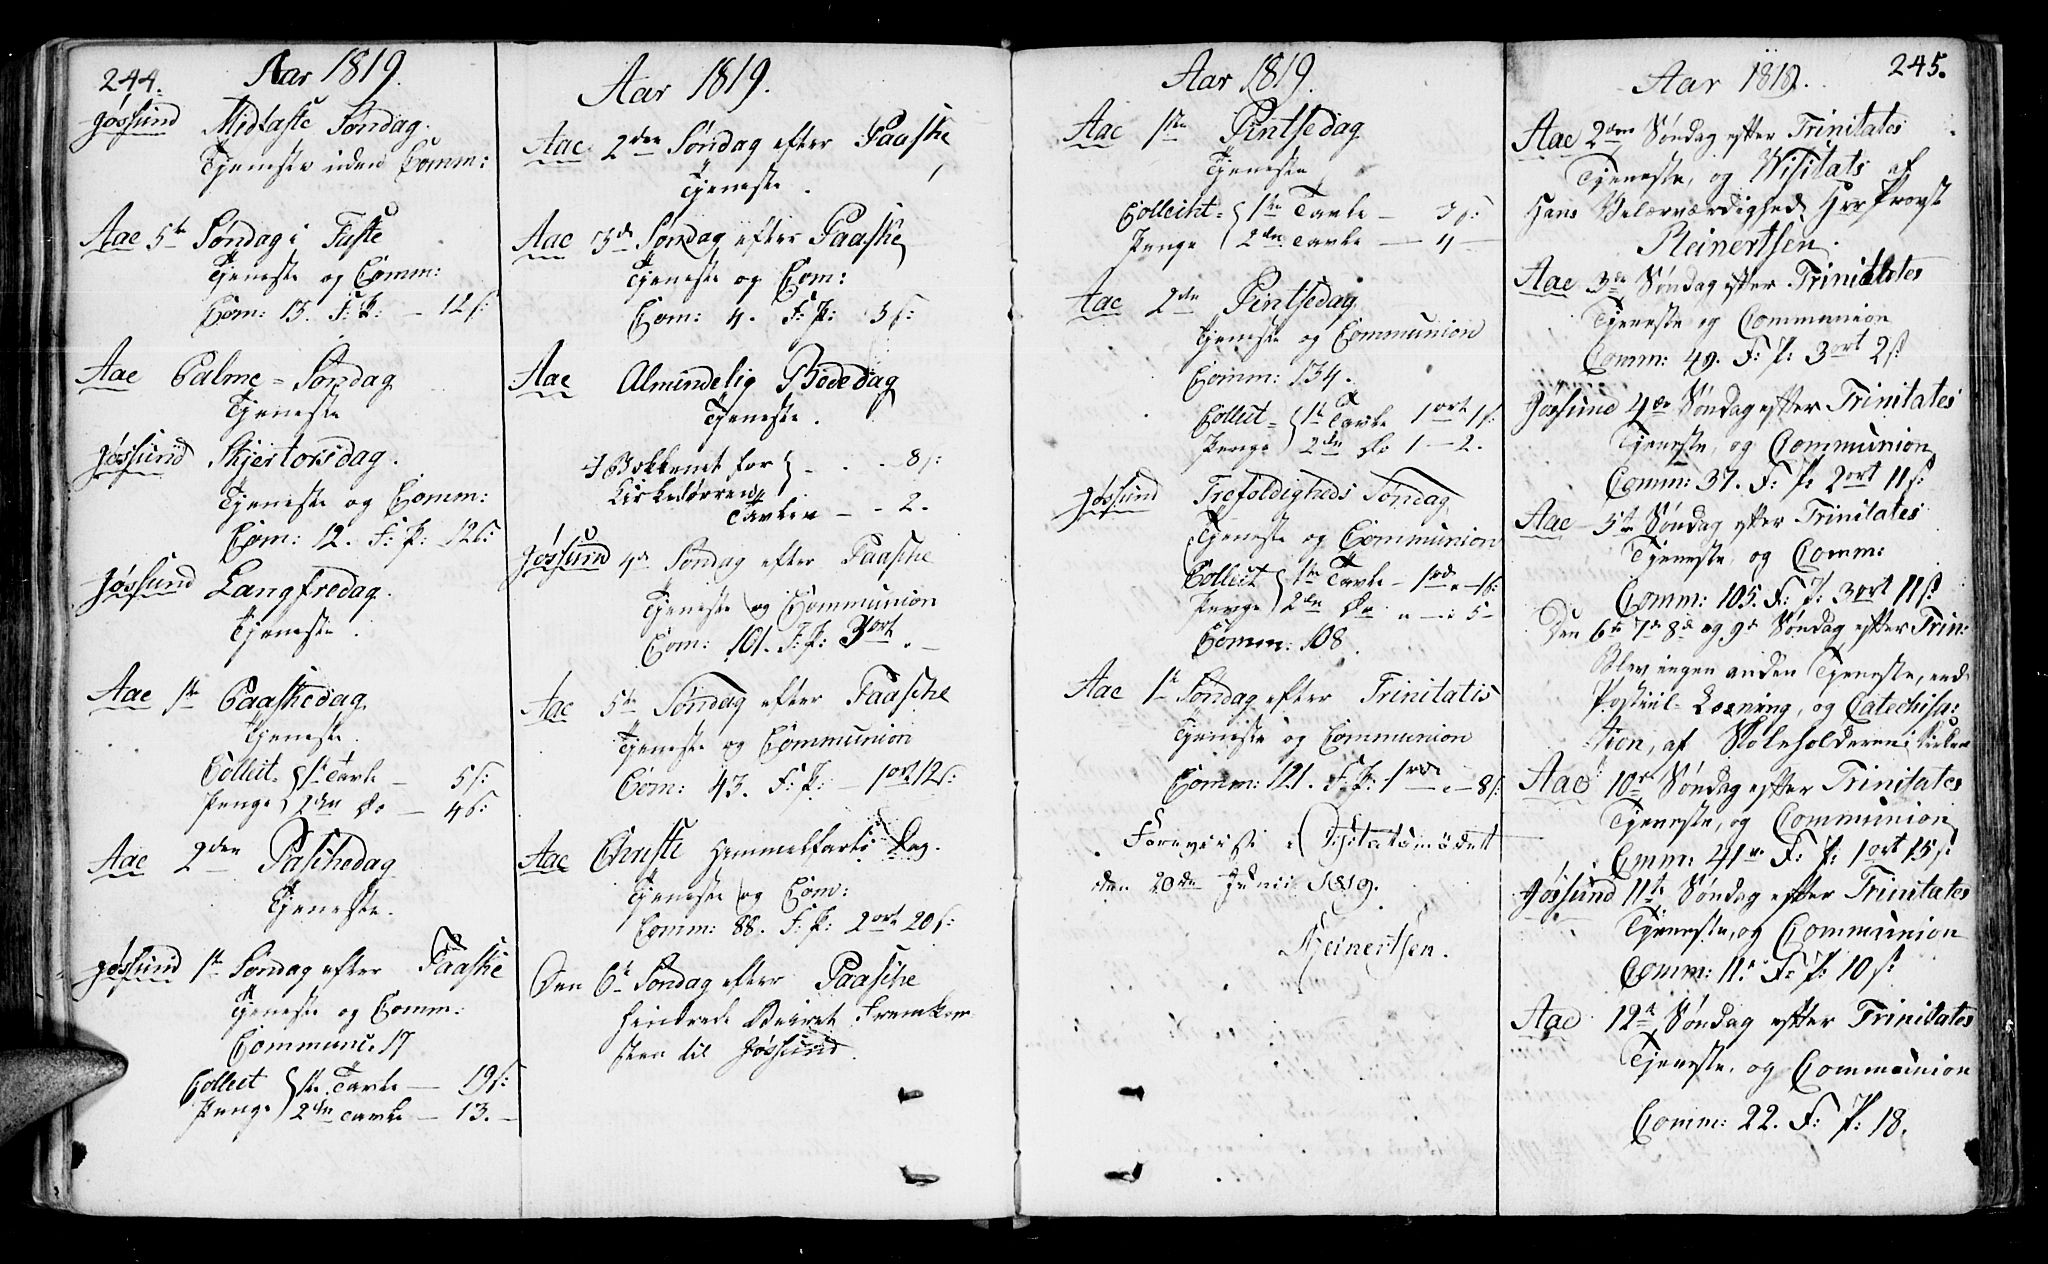 244.
Aar 1819.
Jøssund Midfaste Søndag.
Tjeneste uden Comm:
Aae 5te Søndag i Faste
Tjeneste og Comm:
Com: 13. F: P: — 12 s:
Aae Palme = Søndag
Tjeneste
Jøssund Skjertorsdag.
Tjeneste og Comm:
Com: 12. F: P: 12 s:
Jøssund Langfredag.
Tjeneste.
Aae 1te Paaskedag
Tjeneste.
Collect = 1te Tavle — 5 s:
Penge 2den Do — 4 s:
Aae 2den Paschedag
Tjeneste.
Jøssund 1te Søndag efter Paaske
Tjeneste og Comm:
Communi: 17
Collect 1te Tavle — 19 s:
Penge 2den Tavle — 13. —
Aar 1819.
Aae 2den Søndag efter Paaske
Tjeneste.
Aae 3de Søndag efter Paaske
Tjeneste og Com:
Com: 4. F: P: 3 s:
Aae Almindelig Bededag
Tjeneste.
I Bekkenet for - . - 8 s:
Kirkedørren
Tavlen — - 2.
Jøssund 4de Søndag efter Paasche
Tjeneste og Communion
Com: 101. F: P: 3 ort . —
Aae 5te Søndag efter Paasche
Tjeneste og Communion
Com: 43. F: P: — 1 ort 12 s:
Aae Christi Hemmelfarts Dag.
Tjeneste og Com:
Comm: 88. F: P: 2 ort 20 s:
Den 6te Søndag efter Paasche
hindrede Veiret Fremkom
sten til Jøssund.
Aar 1819.
Aae 1ste Pintsedag
Tjeneste
Collecht = 1te Tavle — 3 s:
Penge 2den Tavle — 4 —
Aae 2den Pintsedag
Tjeneste og Communion
Comm: 134.
Collect = 1te Tavle 1 ort 1 s:
Penge 2den Do 1 — 2.
Jøssund Trefoldigheds Søndag
Tjeneste og Communion
Collect 1te Tavle — 1 rd „ — 1 s:
Penge 2den Do „ — : 5 —
Comm: 108.
Aae 1te Søndag efter Trinitatis
Tjeneste og Communion
Comm: 121. F: P: 1 rd — „ — 8 s:
Foreviist i Visitatsmødet
den 20de Junii 1819.
Steinertsen.
245.
Aar 1819.
Aae 2den Søndag efter Trinitates
Tjeneste, og Visitats af
Hans Velærværdighed Hrr Provst
Steinertsen.
Aae 3de Søndag efter Trinitates
Tjeneste og Communion
Comm: 49. F: P: 3 ort 2 s
Jøssund 4de Søndag efter Trinitates
Tjeneste, og Communion
Comm: 37. F: P: 2 ort 11 s:
Aae 5te Søndag efter Trinitates
Tjeneste, og Comm:
Comm: 105. F: P: 3 ort 11 s.
Den 6te 7de 8de og 9de Søndag efter Trin:
Blev ingen anden Tjeneste, end
Postiil = Læsning, og Catechisa:
tion, af Skoleholderen i Kirken
Aae 10de Søndag efter Trinitates
Tjeneste, og Communion
Comm: 41. F: P: 1 ort 15 s
Jøssund 11te Søndag efter Trinitates
Tjeneste, og Communion
Comm: 11. F: P: 10 s:
Aae 12te Søndag efter Trinitates
Tjeneste, og Communion
Comm: 22. F: P: 18.